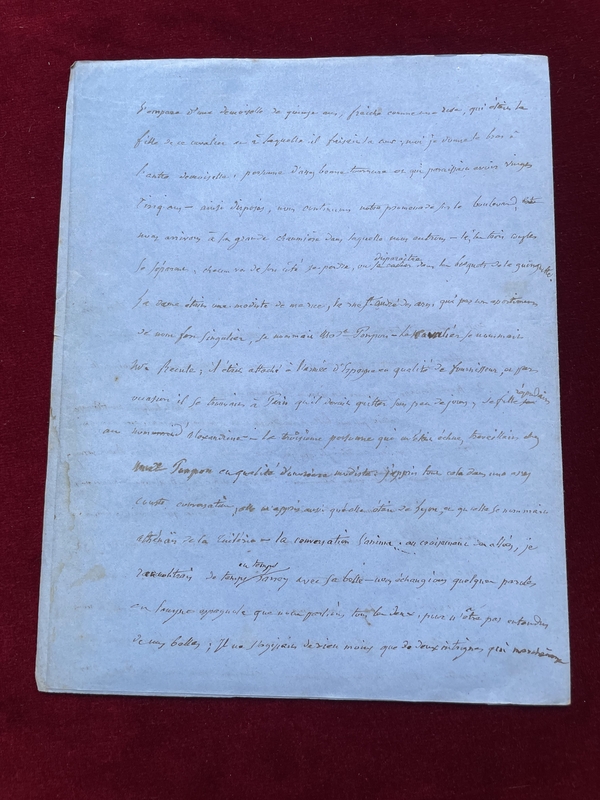 s'empara d'une demoiselle de quinze ans, fraîche comme une rose, qui était la
fille de ce cavalier ou à laquelle il faisait la cour; moi je donnai le bras à
l'autre demoiselle, personne d'assez bonne tournure et qui pouvait avoir vingt
cinq ans — ainsi disposés, nous continuons notre promenade sur le boulevard,
nous arrivons à la grande chaumière dans laquelle nous entrons — là, les trois couples
se séparent, chacun va de son côté se perdre, ou disparaître dans les bosquets de la guinguette.
La dame était une modiste de la rue, qui par un
de nom fort singulier, se nommait Mad. Pompon — le cavalier se nommait
il était attaché à l'armée d'Espagne en qualité de fournisseur, et par
occasion il se trouvait à Paris qu'il devait quitter sous peu de jours, sa fille répondait
au nom d'Alexandrine — la troisième personne qui m'était échue, travaillait chez
Mad. Pompon en qualité d'ouvrière modiste. j'appris tout cela dans une assez
courte conversation, elle m'apprit aussi qu'elle était de Lyon, et qu'elle se nommait
de la la conversation s'anime, au croisement des allées, je
rencontrais de temps en temps avec sa belle — nous échangions quelques paroles
en langue espagnole que nous parlions tous les deux, pour n'être pas entendus
de nos belles; Il ne s'agissait de rien moins que de deux intrigues qui marchaient